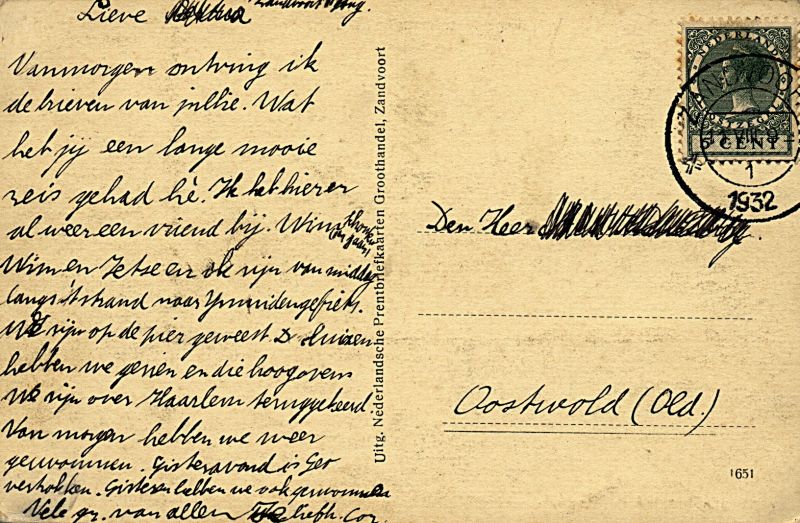 Lieve
Zandvoort
Vanmorgen ontving ik
de brieven van jullie. Wat
heb jij een lange mooie
reis gehad hè. Ik heb hier er
al weer een vriend bij. Wim
Wim en Jetse en ik zijn van middag
langs 't strand naar IJmuiden gefietst.
We zijn op de pier geweest. De Huizen
hebben we gezien en die hoogovens
We zijn over Haarlem teruggekeerd
Van morgen hebben we weer
gezwommen. Gisteravond is Ger
vertrokken. Gisteren hebben we ook gezwommen
Vele gr. van allen liefh. Cor.
Uitg. Nederlandsche Prentbriefkaarten Groothandel, Zandvoort
NEDERLAND
POSTZEGEL
6 CENT
ZANDVOORT
VIII
1
1932
Den Heer
Oostwold (Old.)
1651